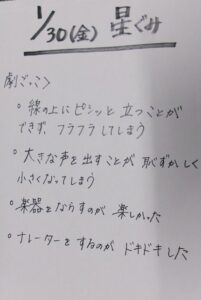 1/30(金) 星ぐみ
劇ごっこ>
○ 線の上にピシッと立つことが
できず、フラフラしてしまう
○ 大きな声を出すことが恥ずかしく
小さくなってしまう
○ 楽器をならすのが楽しかった
○ ナレーターをするのがドキドキした